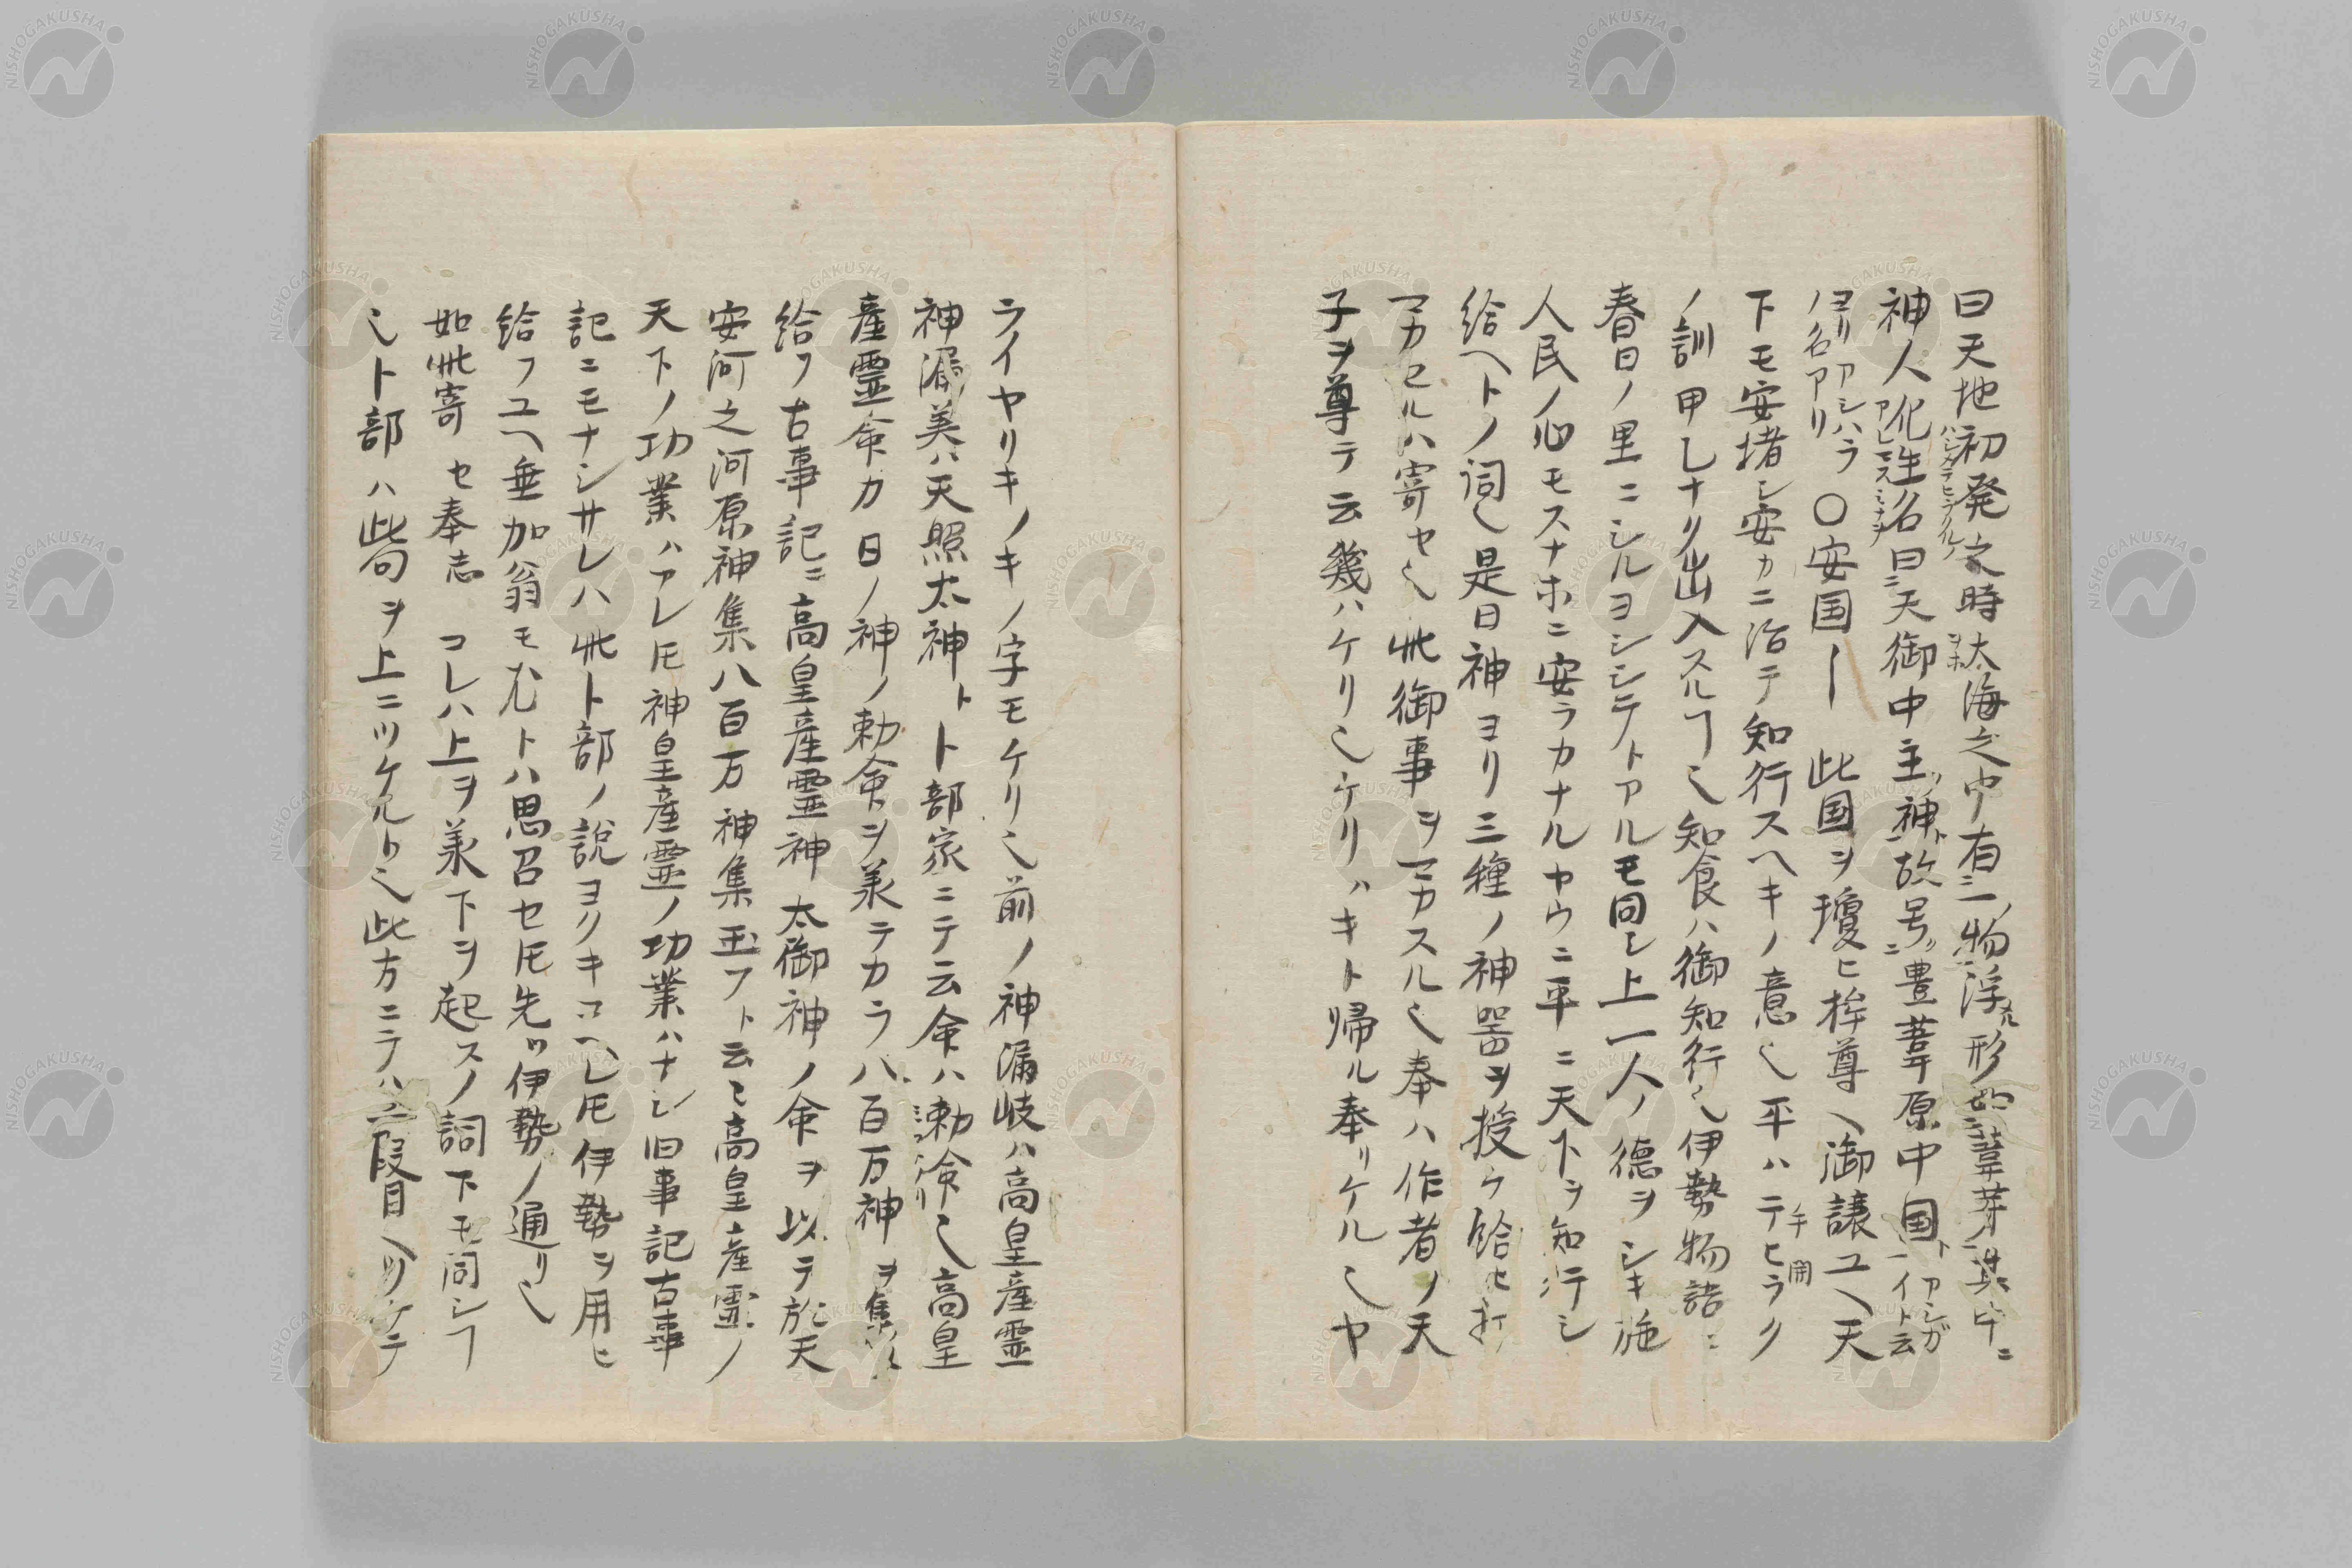 曰天地初発之時大海之中有一物浮形如葦芽其中ニ
神人化生名曰天御中主神故号豊葦原中国トアシガイト云
ノヨリアシハラノ名アリ〇安国ー 此国ヲ瓊々杵尊へ御譲ユヘ天
下モ安堵シ安カニ治テ知行スヘキノ意也平ハテヒラク
ノ訓甲乙ナリ出入スルヿ也知食ハ御知行也伊勢物語ニ
春日ノ里ニシルヨシシテトアルモ同シ上一人ノ徳ヲシキ施
人民ノ心モスナホニ安ラカナルヤウニ平ニ天下ヲ知行シ
給ヘトノ詞也是日神ヨリ三種ノ神器ヲ授ケ給ヒ
マカセルハ寄セ也此御事ヲマカスル也奉ハ作者ノ天
子ヲ尊テ云幾ハケリ也ケリハキト帰ル奉リケル也ヤ
ライヤリキノキノ字モケリ也前ノ神漏岐ハ高皇産霊
神漏美ハ天照太神ト卜部家ニテ云命ハ勅命也高皇
産霊命カ日ノ神ノ勅命ヲ承テカラ八百万神ヲ集
給フ古事記ニ高皇産霊神太御神ノ命ヲ以テ於天
安河之河原神集八百万神集玉フト云々高皇産霊ノ
天下ノ功業ハアレ𪜈神皇産霊ノ功業ハナシ旧事記古事
記ニモナシサレハ此卜部ノ説ヨクキコヘレ𪜈伊勢ヲ用ヒ
給フユヘ垂加翁モ尤トハ思召セ𪜈先ツ伊勢ノ通リ也
如此寄セ奉志 コレハ上ヲ承下ヲ起スノ詞下モ同シヿ
也卜部ハ此句ヲ上ニツケルト也此方ニテハ二段目ヘツケテ